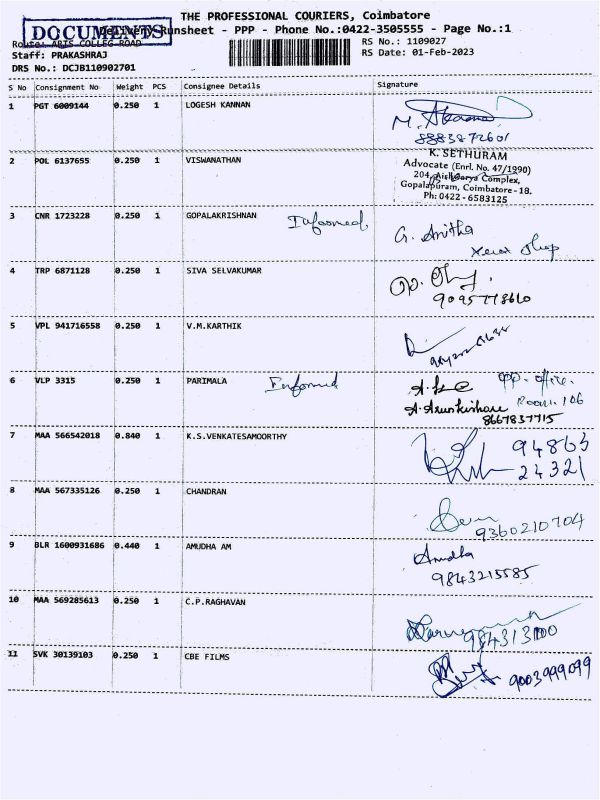 THE PROFESSIONAL COURIERS, Coimbatore
DOCUMENTS
Delivery Runsheet - PPP - Phone No.:0422-3505555 - Page No.:1
Route: ARTS COLLEG ROAD
RS No.: 1109027
Staff: PRAKASHRAJ
RS Date: 01-Feb-2023
DRS No.: DCJB110902701
S No Consignment No Weight PCS Consignee Details Signature
1 PGT 6009144 0.250 1 LOGESH KANNAN
8883872601
2 POL 6137655 0.250 1 VISWANATHAN
K. SETHURAM
Advocate (Enrl. No. 47/1990)
204, Aishwarya Complex,
Gopalapuram, Coimbatore-18.
Ph: 0422-6583125
3 CNR 1723228 0.250 1 GOPALAKRISHNAN Informed
G. Anitha
Xerox shop
4 TRP 6871128 0.250 1 SIVA SELVAKUMAR
9095778610
5 VPL 941716558 0.250 1 V.M.KARTHIK
6 VLP 3315 0.250 1 PARIMALA Informed
opp. office.
Room. 106
A. Arunkishore
8667837715
7 MAA 566542018 0.840 1 K.S.VENKATESAMOORTHY
94863
24321
8 MAA 567335126 0.250 1 CHANDRAN
9360210704
9 BLR 1600931686 0.440 1 AMUDHA AM
Amudha
9843215585
10 MAA 569285613 0.250 1 C.P.RAGHAVAN
11 SVK 30139103 0.250 1 CBE FILMS
9003999099